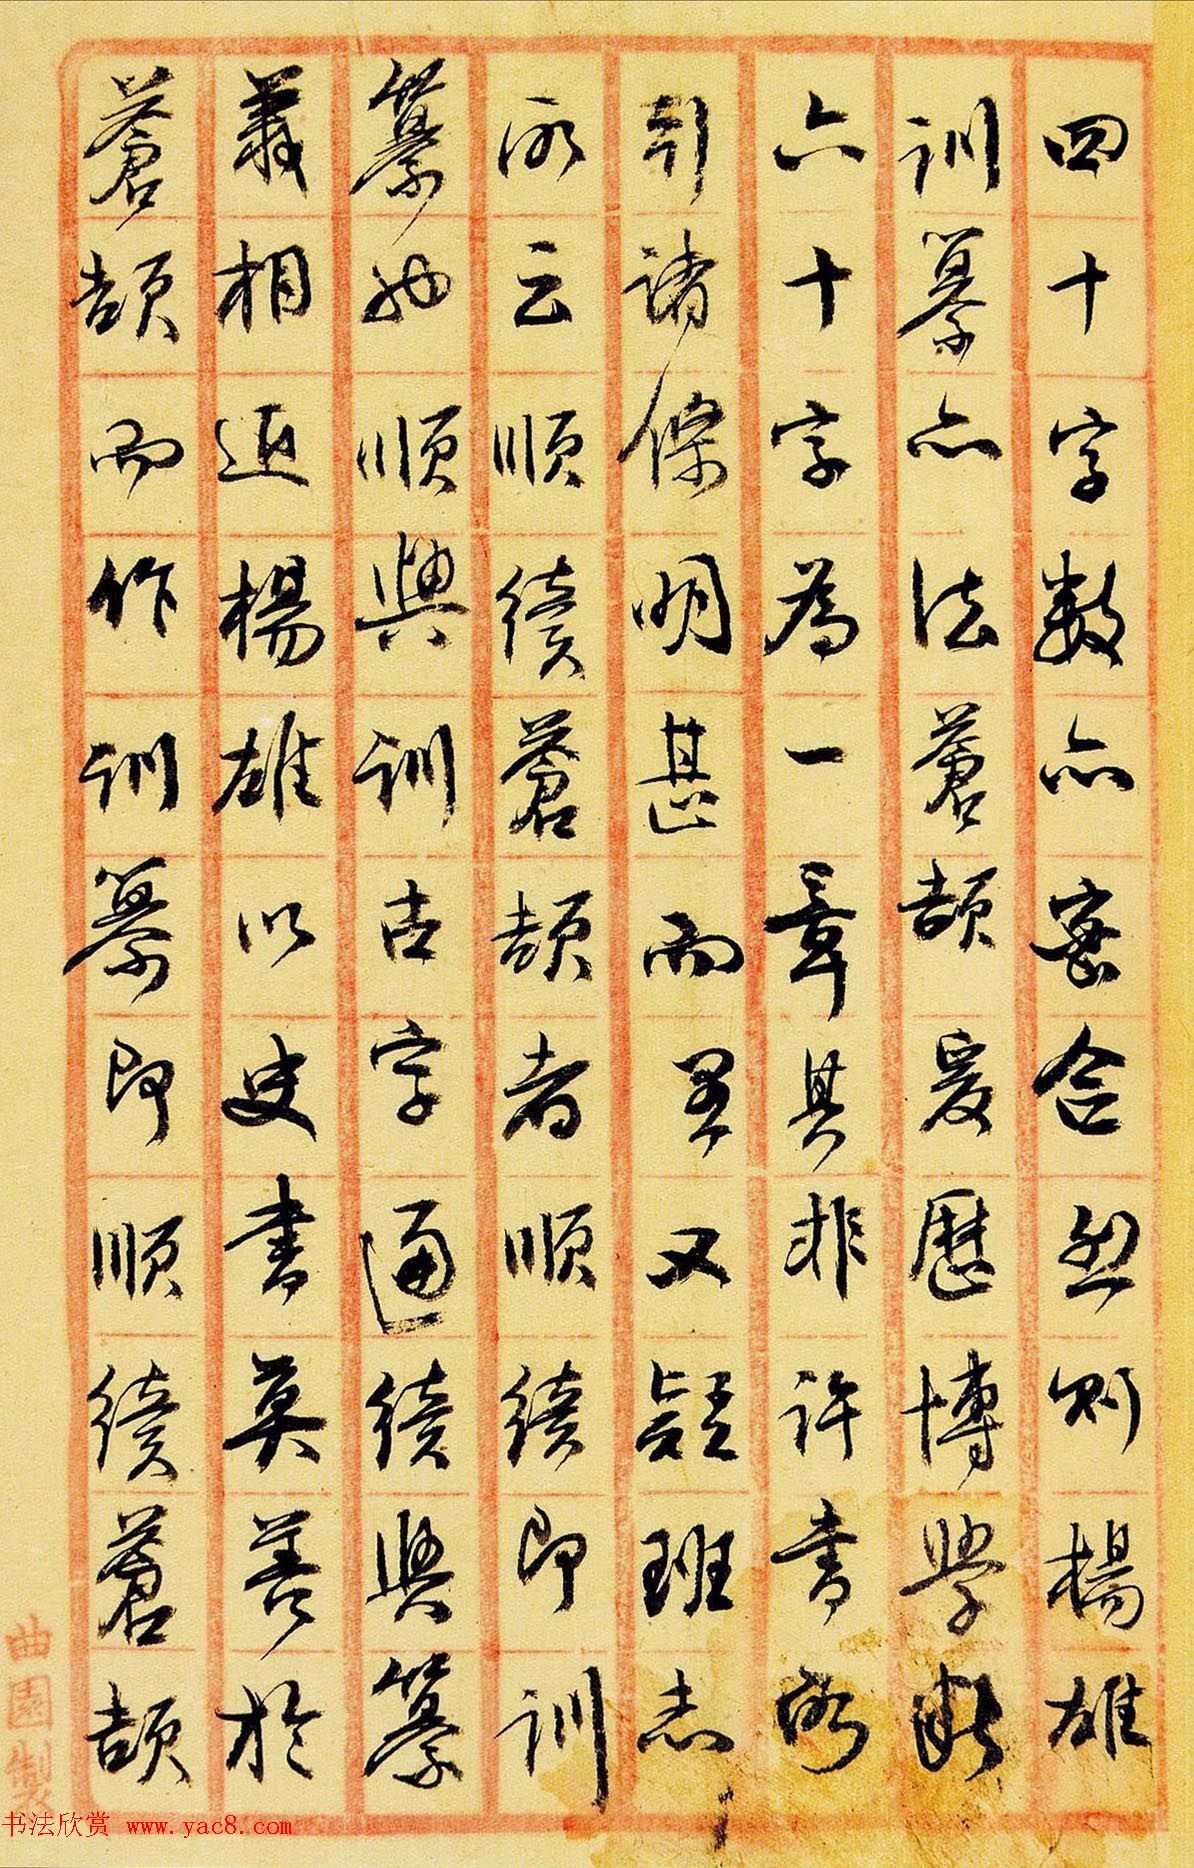 四十字數亦密合然則楊雄
訓纂亦法蒼頡爰歷博學斷
六十字為一章其非許書所
引諸條明甚而君又疑班志
所云順續蒼頡者順續即訓
纂也順與訓古字通續與纂
義相近楊雄以史書莫善於
蒼頡而作訓纂即順續蒼頡
曲園製
书法欣赏 www.yac8.com